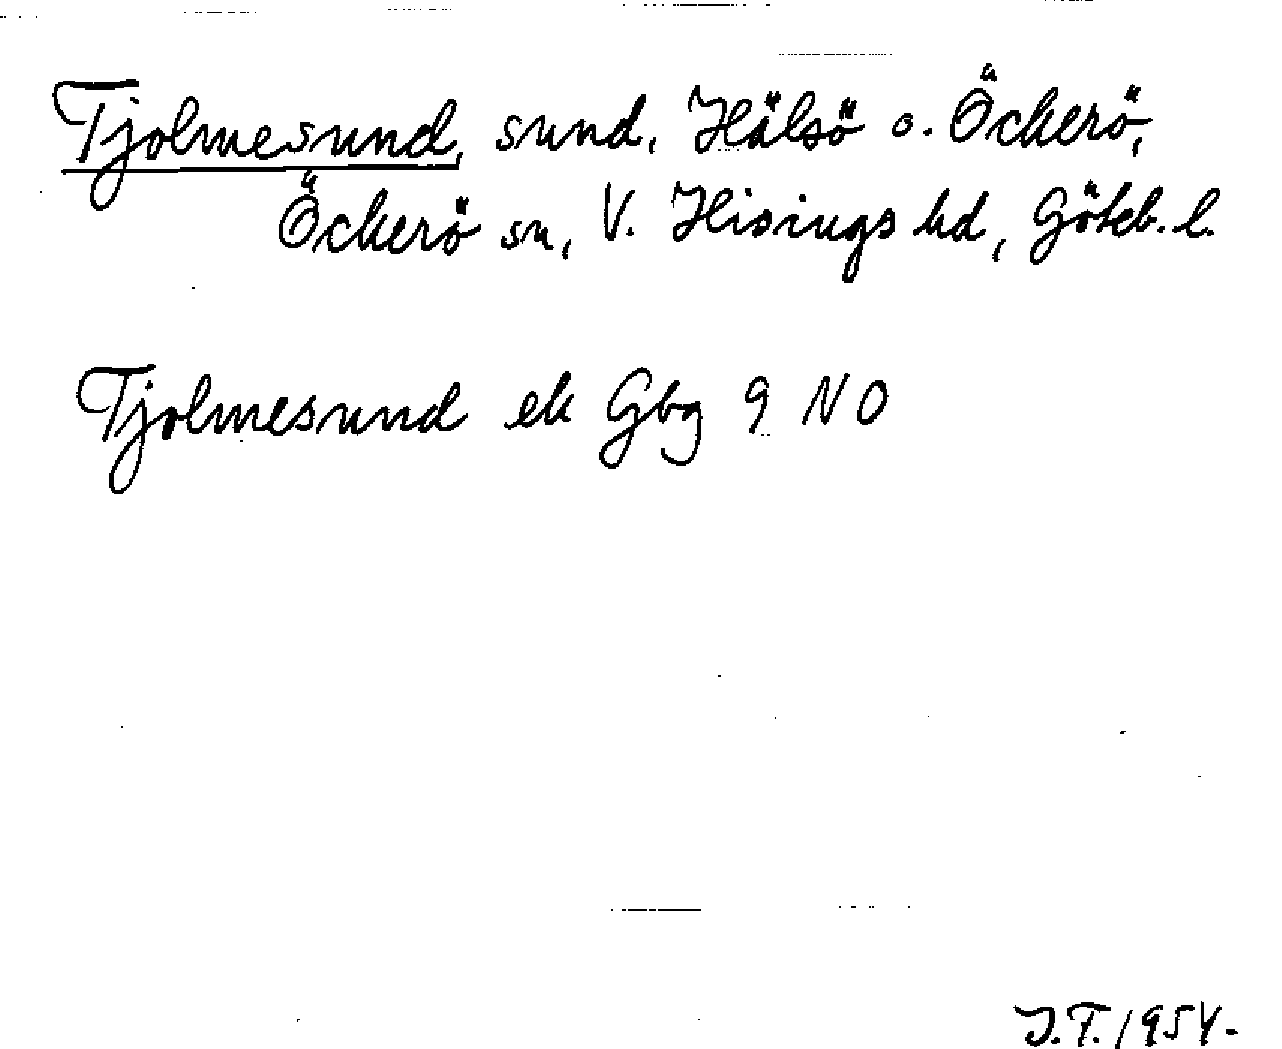 Tjolmesund, sund, Hälsö o. Öckerö,
Öckerö sn, V. Hisings hd, Göteb. l.
Tjolmesund ek Gbg 9 NO
J.T. 1954.